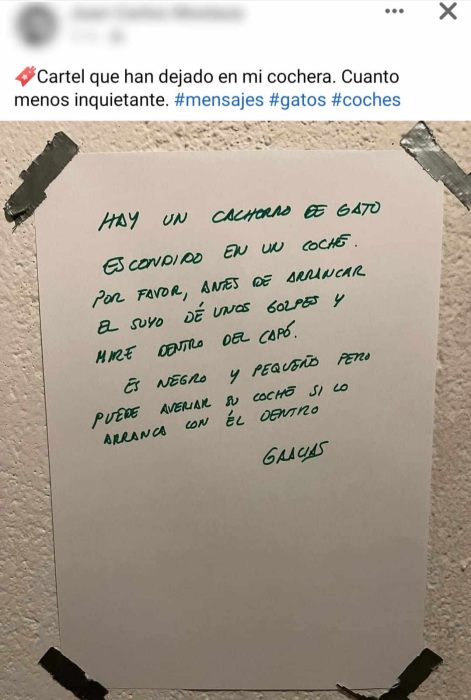 Cartel que han dejado en mi cochera. Cuanto
menos inquietante. #mensajes #gatos #coches
HAY UN CACHORRO DE GATO
ESCONDIDO EN UN COCHE.
POR FAVOR, ANTES DE ARRANCAR
EL SUYO DÉ UNOS GOLPES Y
MIRE DENTRO DEL CAPÓ.
ES NEGRO Y PEQUEÑO PERO
PUEDE AVERIAR SU COCHE SI LO
ARRANCA CON ÉL DENTRO
GRACIAS